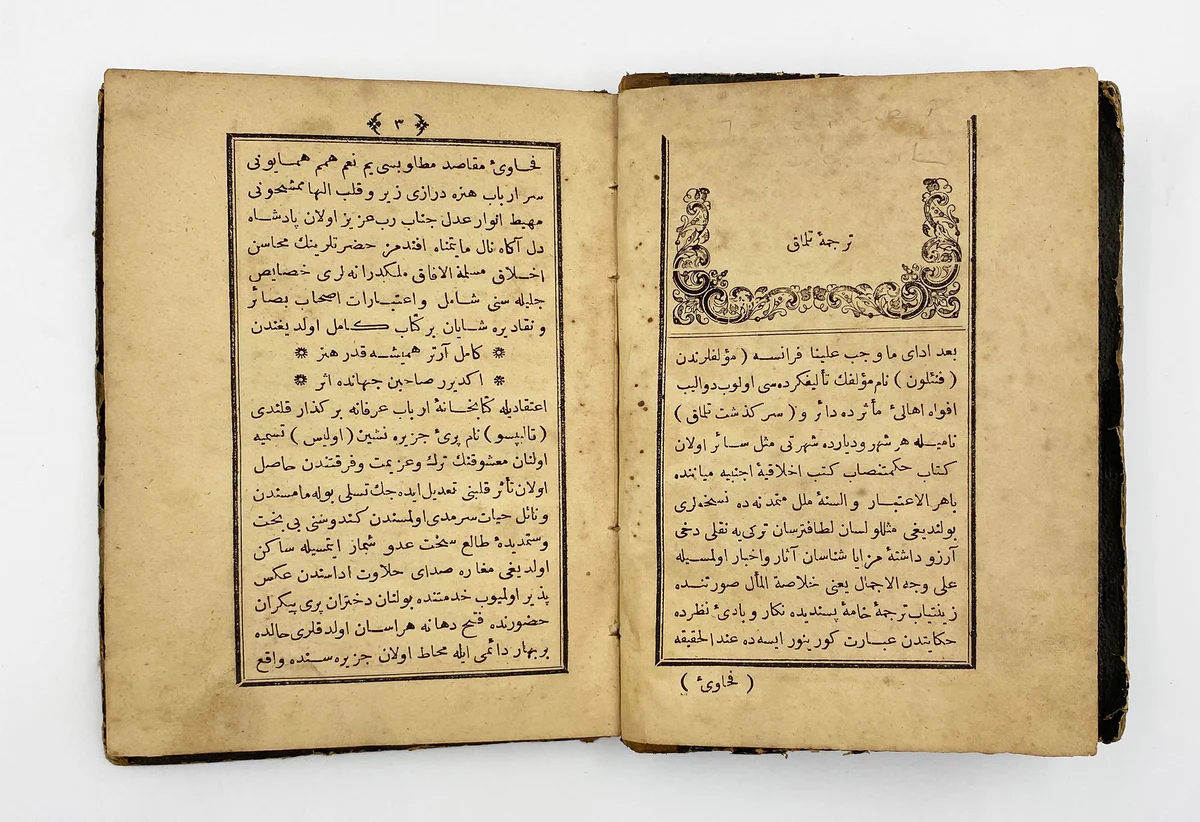 ترجمهٔ تلماق
بعد ادای ما وجب علینا فرانسه ( مؤلفلرندن
( فنئلون ) نام مؤلفك تألیفکرده‌سی اولوب دوالیب
افواه اهالیٔ مأثرده دائر و ( سرکذشت تلماق )
نامیـله هر شهر ودیارده شهرتی مثل سـائر اولان
کتاب حکمتنصاب کتب اخلاقیهٔ اجنبیه میاننده
باهر الاعتبـار و السنهٔ ملل متمدنه ده نسخه‌لری
بولندیغی مثللو لسان لطافترسان ترکی‌یه نقلی دخی
آرزو داشتهٔ مزایا شناسان آثار واخبار اولمسـیله
علی وجه الاجمال یعنی خلاصة المأل صورتنـده
زینتیاب ترجمهٔ خامهٔ پسندیده نکار و بادیٔ نظرده
حکایتدن عبـارت کورینور ایسه‌ده عند الحقیقه
( فحاویٔ )
﴿ ٣ ﴾
فحـاویٔ مقاصد مطاوبسی یم نعم همم همـایونی
سر ارباب هنره درازی زیر و قلب الهامشحونی
مهبط انوار عدل جناب رب عزیز اولان پادشـاه
دل آکاه نال مایتمناه افندمز حضرتلرینك محاسن
اخـلاق مسلمة الافاق ملکدرانه‌لری خصایص
جلیله سنی شـامل واعتبـارات اصحاب بصـائر
و نقادیره شـایان بر کتاب کـامل اولدیغندن
❋ کامل آرتر همیشـه قدر هنر ❋
❋ اکدیرر صاحبن جهانده اثر ❋
اعتقادیله کتابخـانهٔ ارباب عرفانه بر کذار قلندی
( قالیپسو ) نام پریٔ جزیره نشین ( اولیس ) تسمیه
اولنان معشوقنك ترك وعزیمت وفرقتندن حاصل
اولان تأثر قلبنی تعدیل ایده‌جك تسلی بوله مامسندن
و نائل حیات سرمدی اولمسندن کندوسنی بی بخت
وستمدیدهٔ طالع سخت عدو شمار ایتمسیله ساکن
اولدیغی مغاره صدای حلاوت اداسندن عکس
پذیر اولمیوب خدمتنده بولنان دختران پری پیکران
حضورنده فتح دهانه هراسـان اولدقلری حالده
بر بهار دائمی ایله محاط اولان جزیره‌سنده واقع